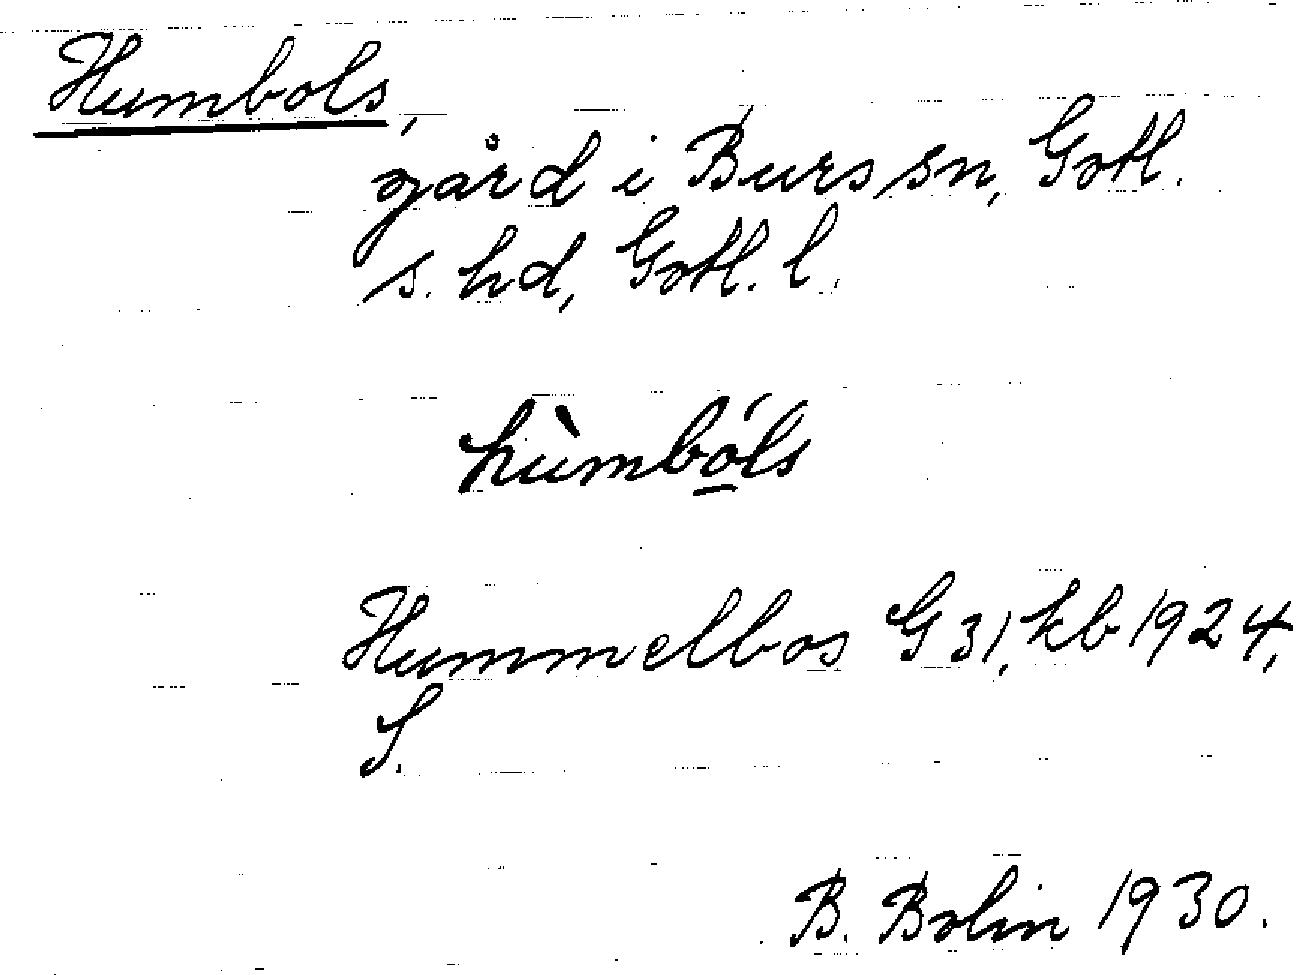 Humbols,
gård i Burs sn, Gotl.
s. hd, Gotl. l.
hùmbó̲ls
Hummelbos G 31, kb 1924,
S.
B. Bolin 1930.